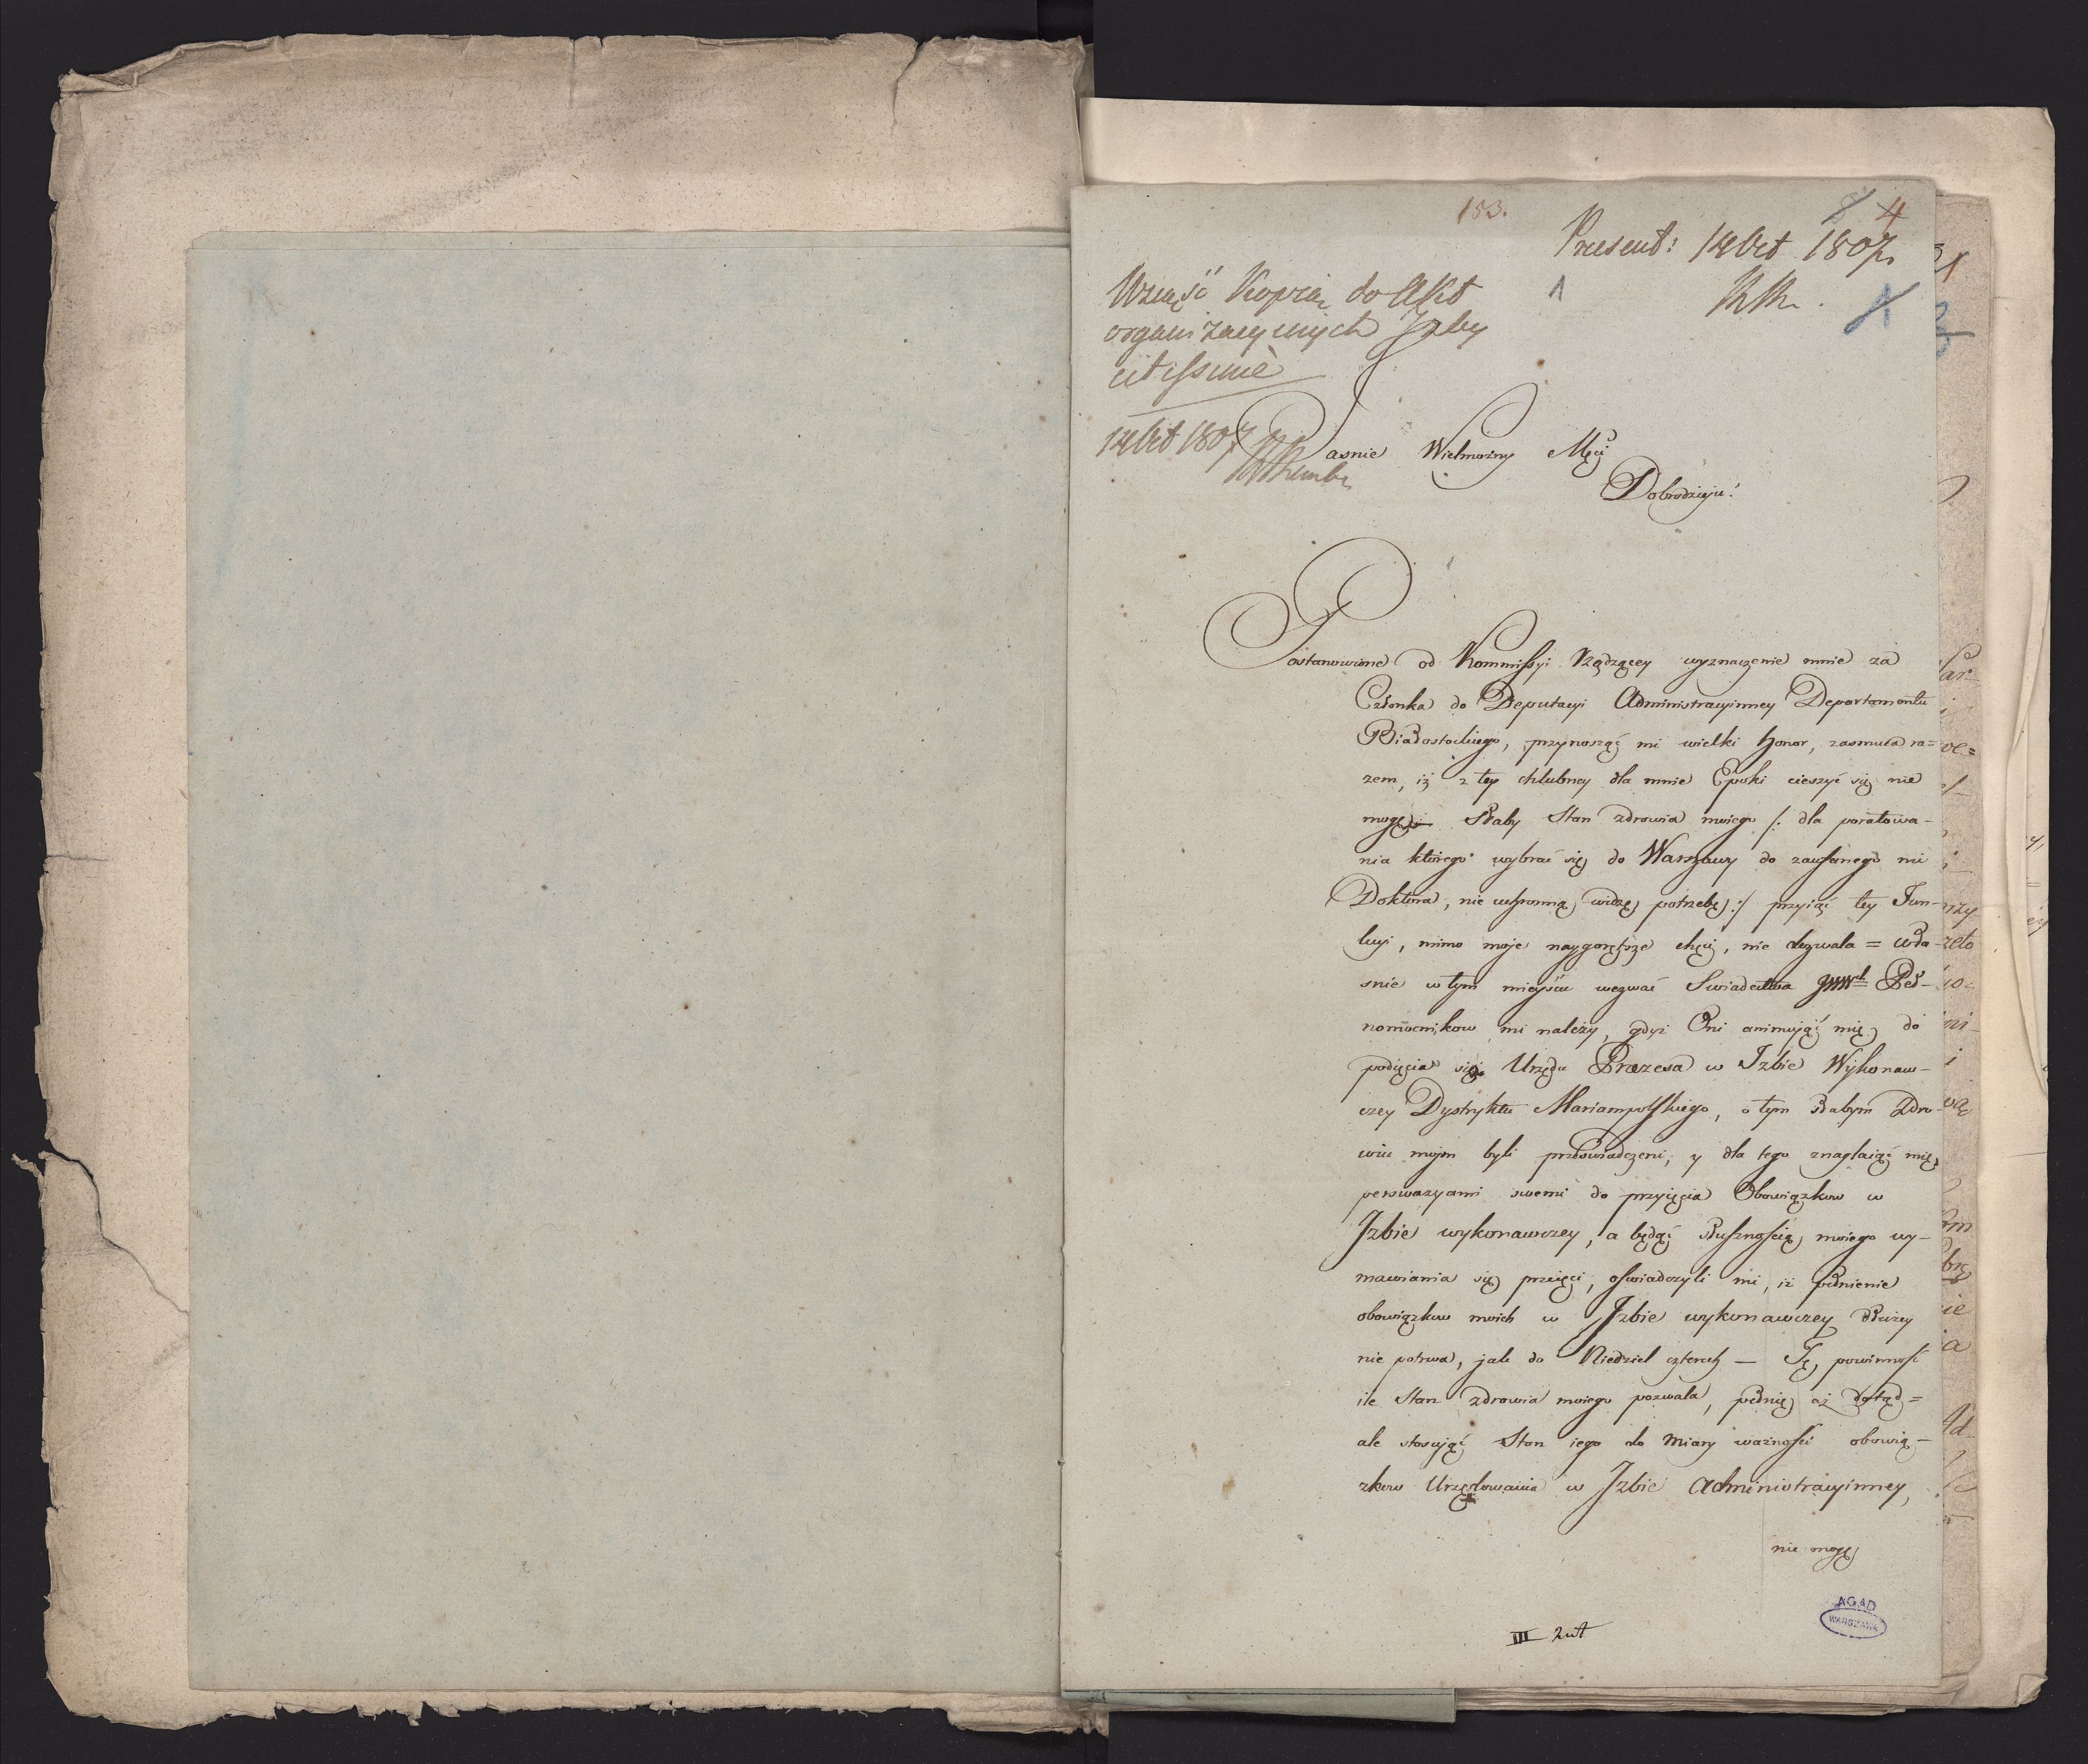 153.
8 4
Present: 14 Oct 1807.
Wziąść Kopią do Akt
organizacyinych Izby
citissime
14 Oct 1807
1
Jasnie Wielmożny Mści
Dobrodzieju!
Postanowione od Kommissyi Rządzącey wyznaczenie mnie za
Członka do Deputacyi Administracyinney Departamentu
Białostockiego, przynosząć mi wielki honor, zasmuca ra=
zem, iż z tey chlubney dla mnie Epoki cieszyć się nie
mogę. Słaby Stan zdrowia moiego /: dla poratowa-
nia którego wybrać się do Warszawy do zaufanego mi
Doktora, nie uchronną widzę potrzebę :/ przyiąć tey Fun-
kcyi, mimo moje naygorętsze chęci, nie dozwala = wła-
snie w tym mieyscu wezwać Swiadectwa JWWch Peł-
nomocnikow mi należy, gdyż Oni animująć mię do
podięcia się Urzędu Prezesa w Izbie Wykonaw-
czey Dystryktu Mariampolskiego, o tym słabym Zdro-
wiu mojm byli przeswiadczeni, y dla tego znaglaiąć mię
perswazyami swemi do przyięcia Obowiązkow w
Izbie wykonawczey, a będąć słusznością moiego wy-
mawiania się przeięci, oswiadczyli mi, iż pełnienie
obowiązkow moich w Izbie wykonawczey dłużey
nie potrwa, jak do Niedziel czterech — Tę powinność
ile Stan zdrowia moiego pozwala, pełnię aż dotąd =
ale stosująć Stan iego do Miary ważności obowią-
zkow Urzędowania w Izbie Administracyinney,
nie mogę
III
AGAD
WARSZAWA